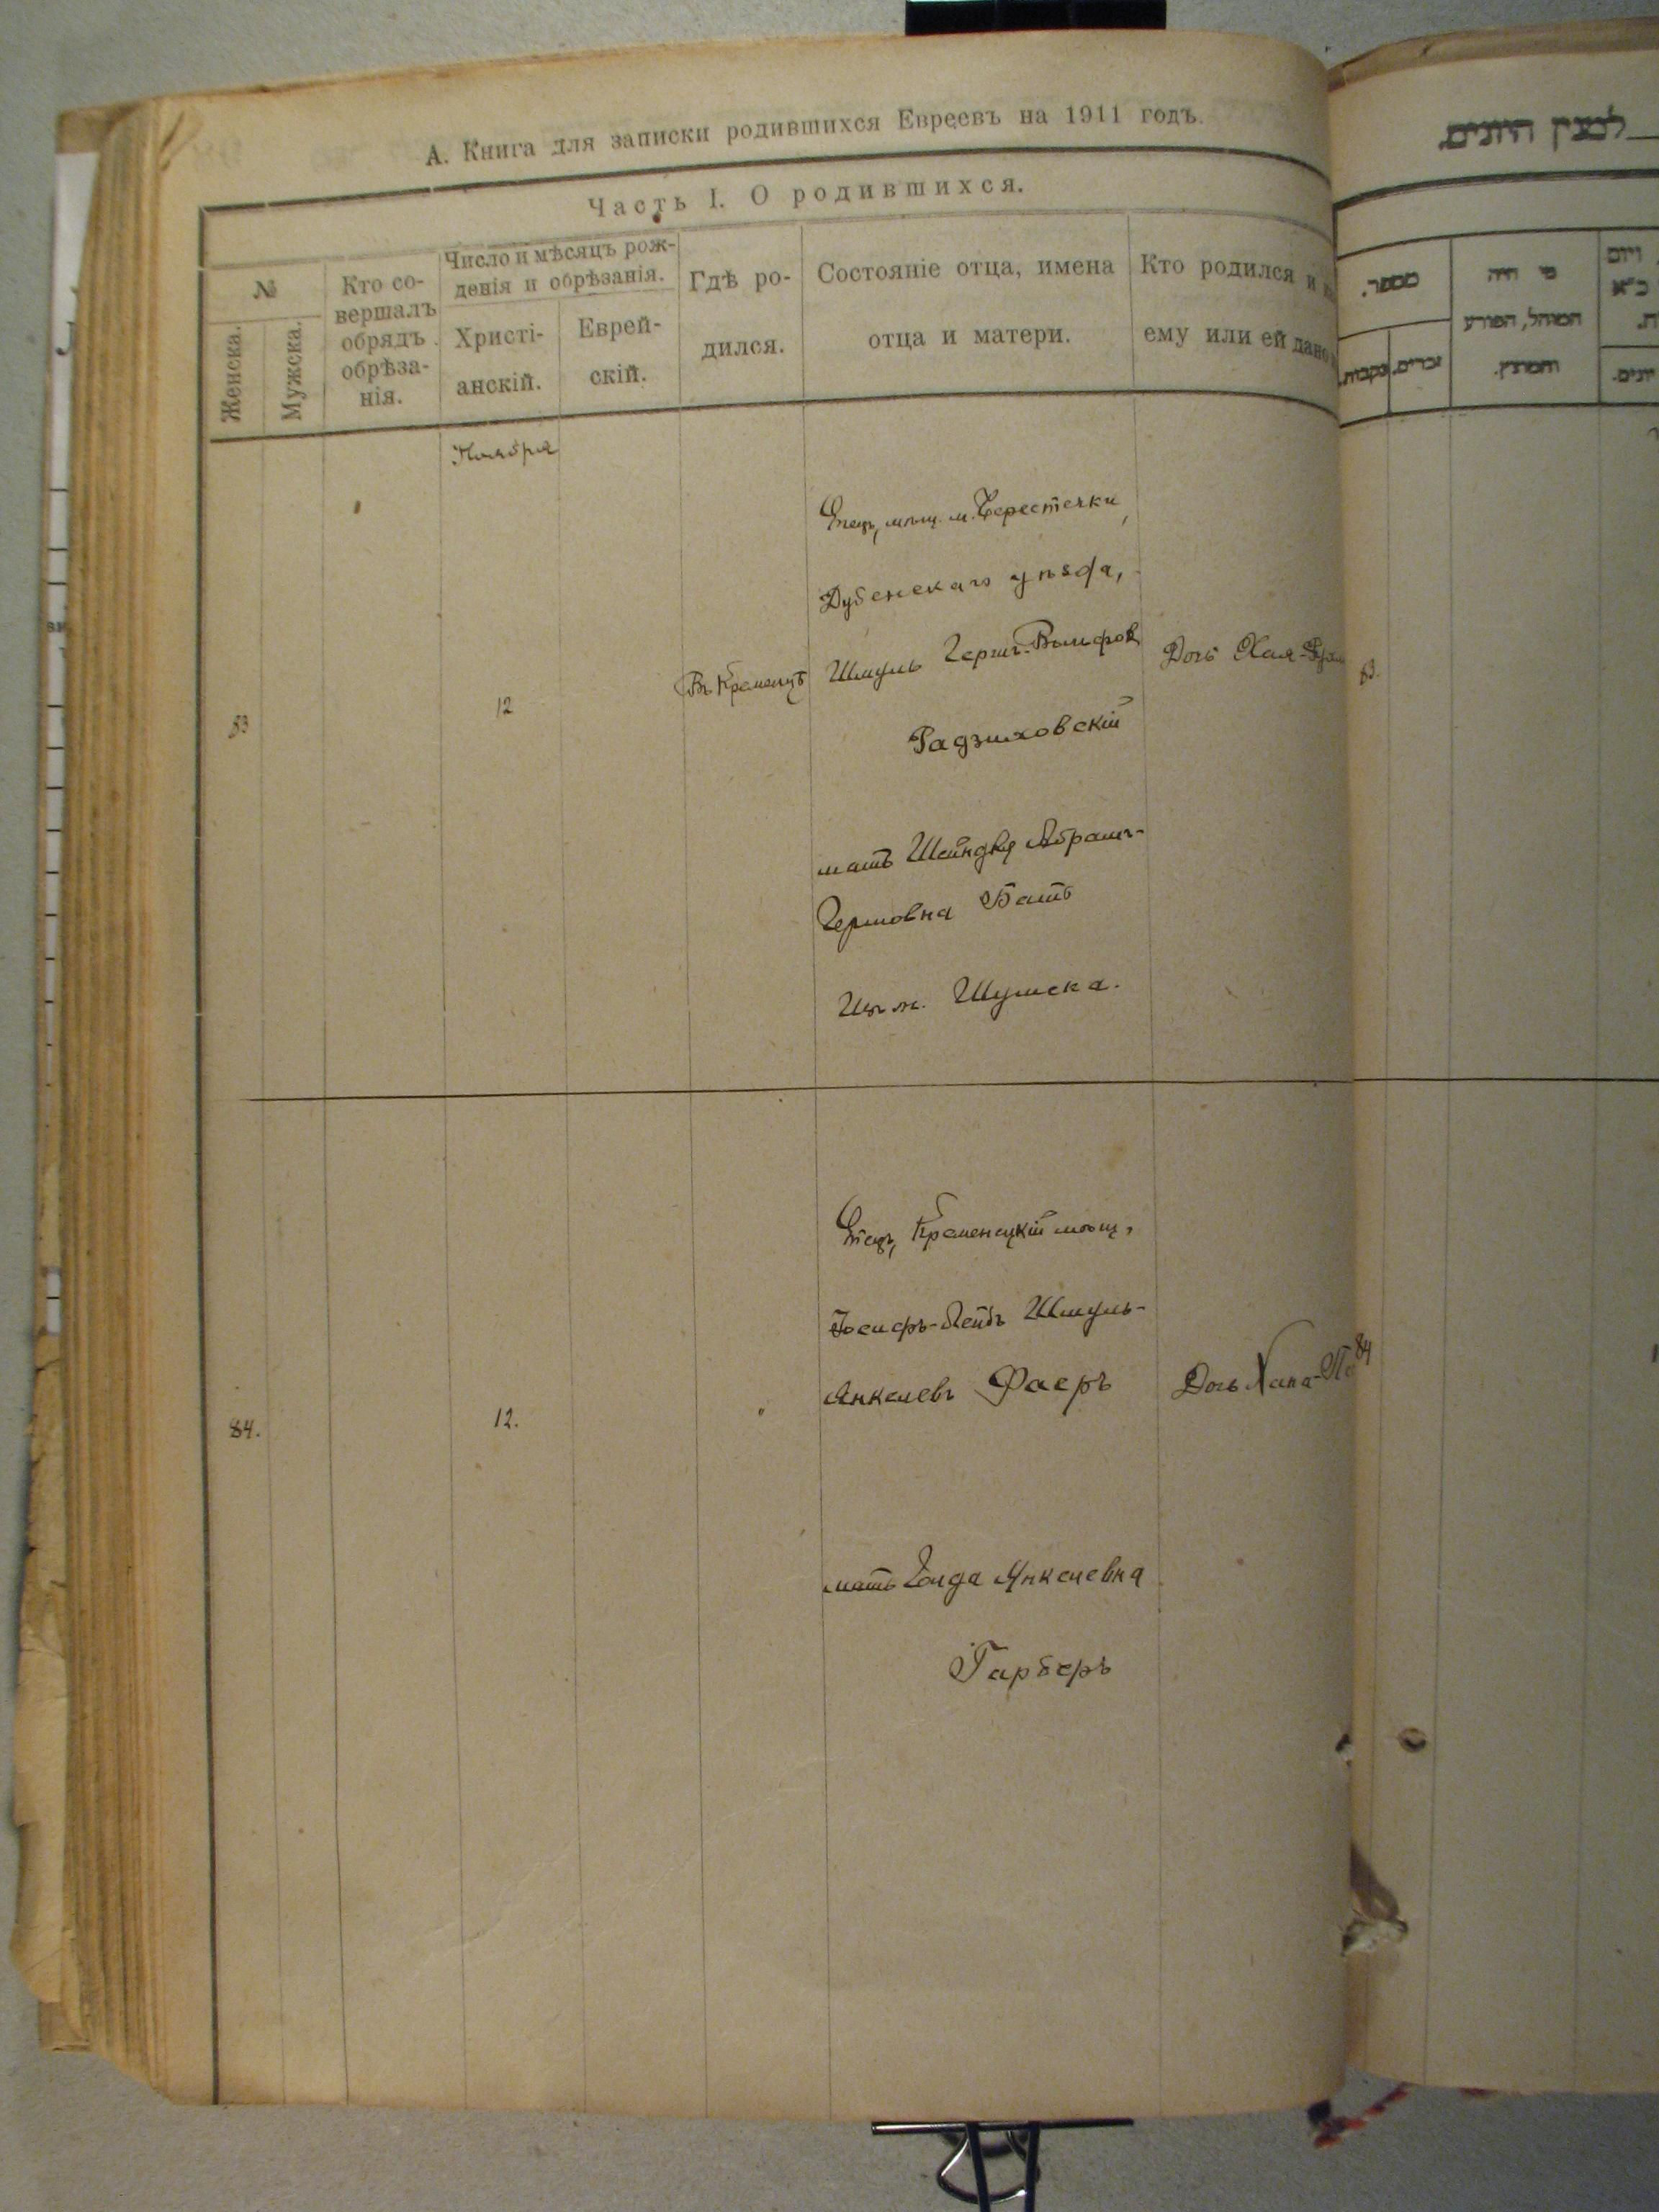 А. Книга для записки родившихся Евреевъ на 1911 годъ.
Часть I. О родившихся.
№
Женска.
Мужска.
Кто со-
вершалъ
обрядъ
обрѣза-
нія.
Число и мѣсяцъ рож-
денія и обрѣзанія.
Христі-
анскій.
Еврей-
скій.
Гдѣ ро-
дился.
Состояніе отца, имена
отца и матери.
Кто родился и
ему или ей дано
Ноября
83
12
Въ Кременцѣ
Отецъ, мѣщ. м. Берестечки,
Дубенскаго уѣзда,
Шмуль Герш-Вольфов
Радзиховскій
мать Шейндля Абрам-
Гершовна Батъ
Изъ м. Шумска.
Дочь Хая-
84.
12.
"
Отецъ, Кременецкій мѣщ.,
Іосифъ-Лейбъ Шмуль-
Янкелевъ Фаеръ
мать Голда Янкелевна
Гарберъ
Дочь Хана-
למצין היונים.
מספר.
זכרים.
נקבות.
מי היה
המוהל, הפורע
והמוצץ.
ויום
83.
84